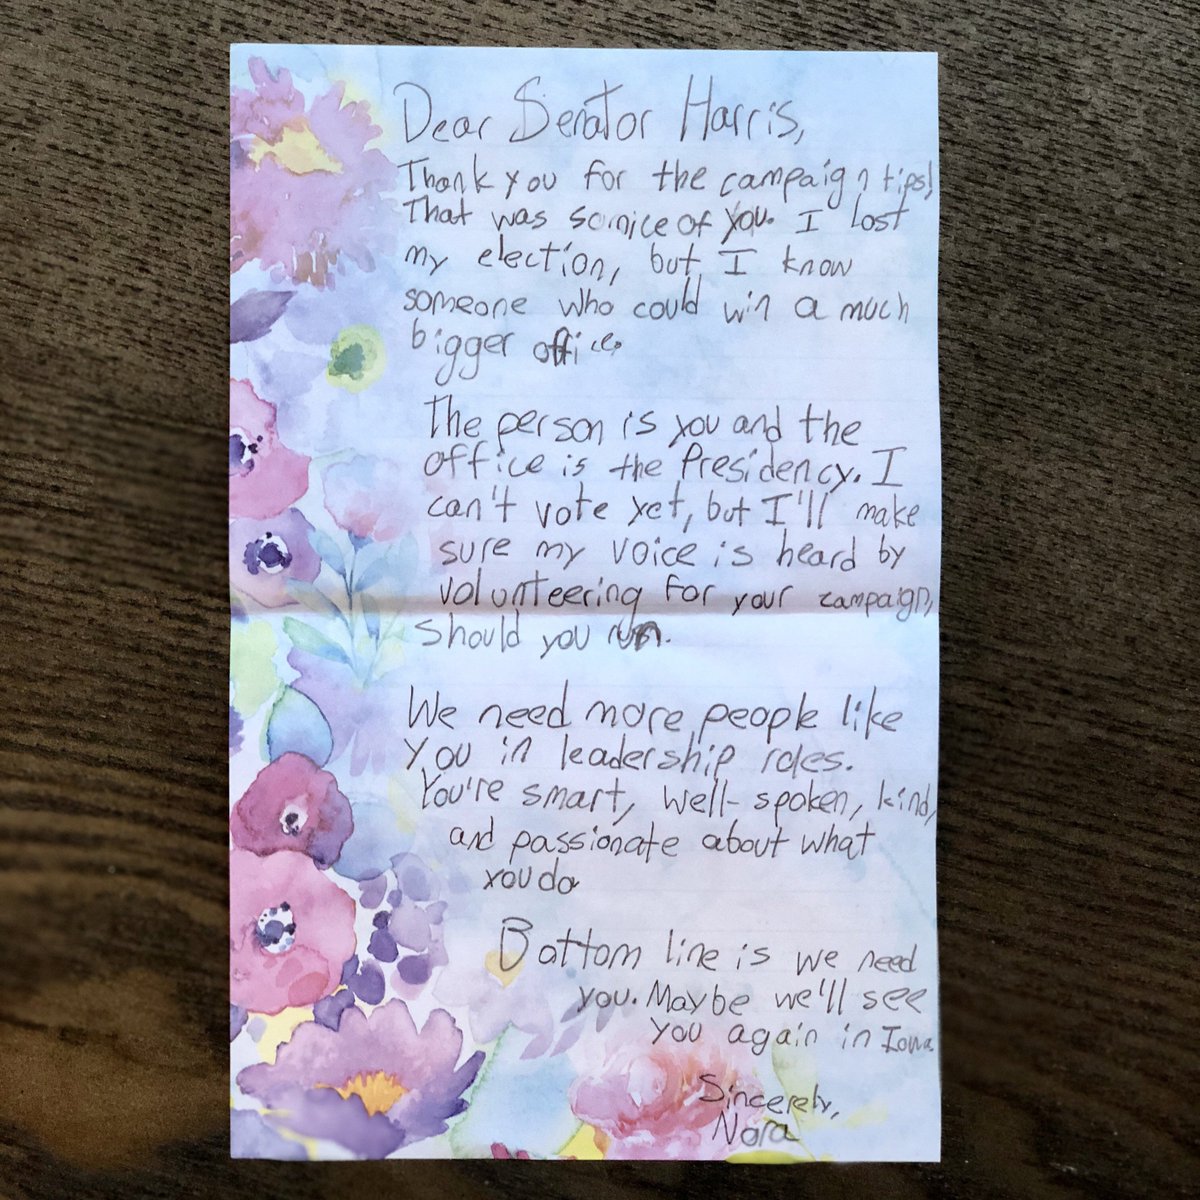 Dear Senator Harris,
Thank you for the campaign tips!
That was so nice of you. I lost
my election, but I know
someone who could win a much
bigger office.
The person is you and the
office is the Presidency. I
can't vote yet, but I'll make
sure my voice is heard by
volunteering for your campaign,
should you run.
We need more people like
you in leadership roles.
You're smart, well-spoken, kind,
and passionate about what
you do
Bottom line is we need
you. Maybe we'll see
you again in Iowa
Sincerely,
Nora